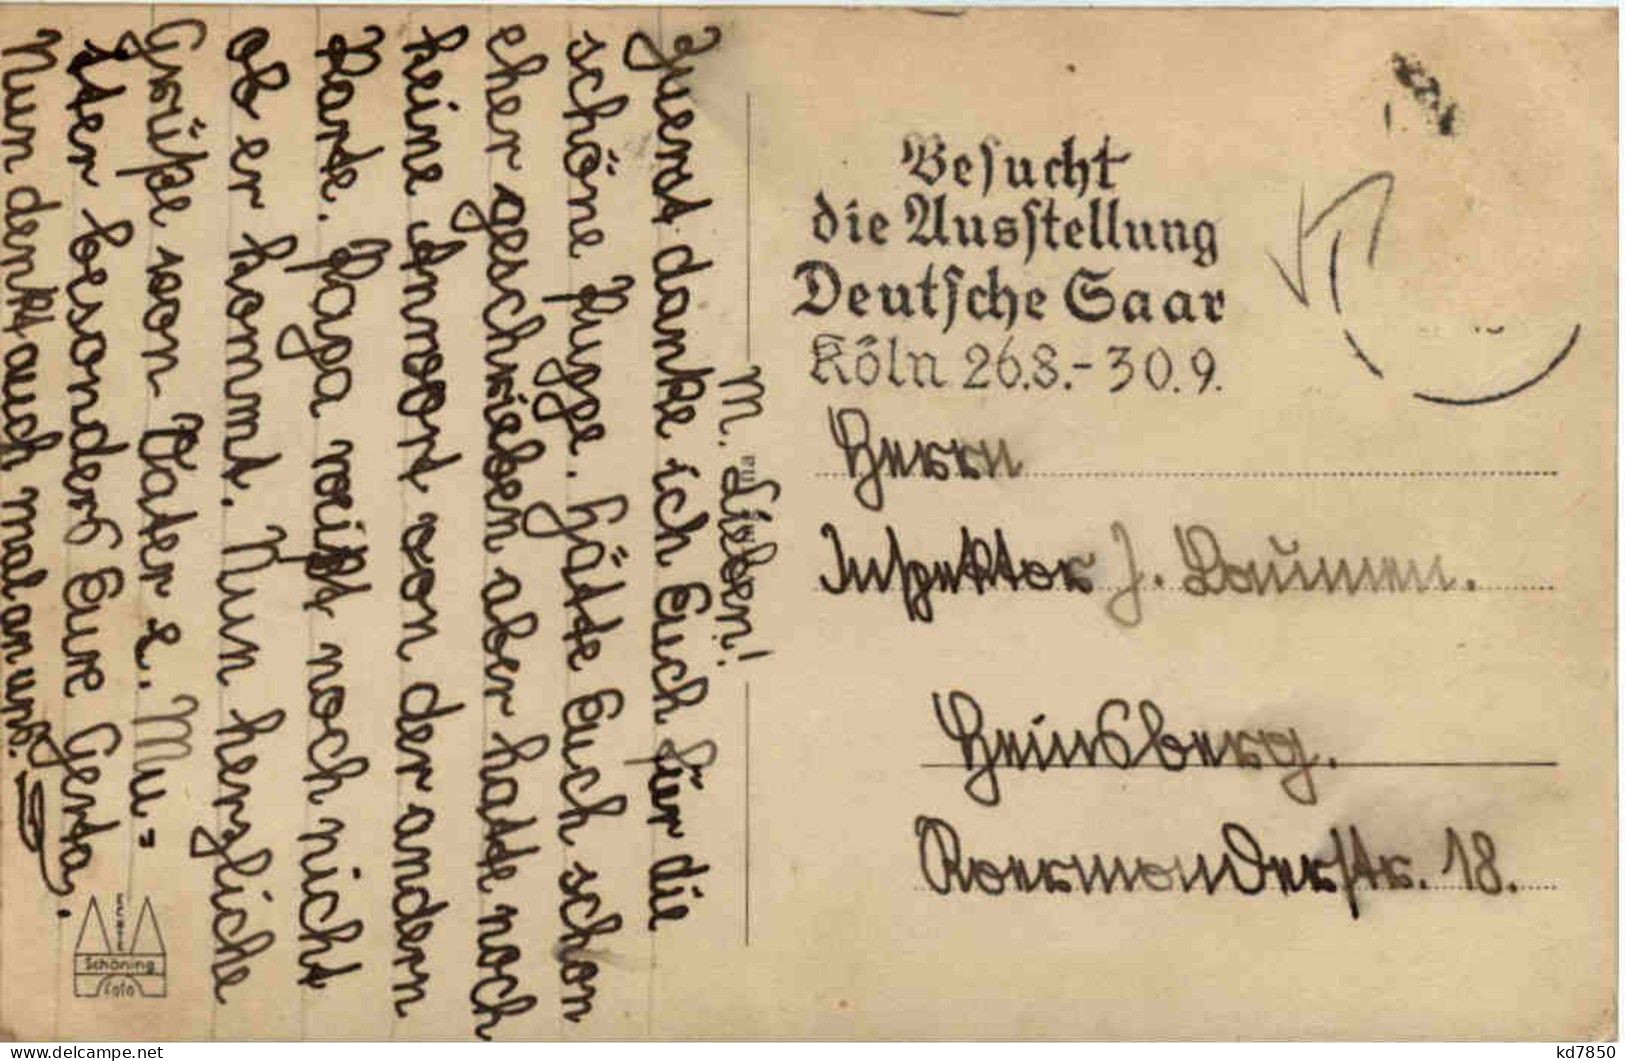 M. Lieben!
Zuerst danke ich Euch für die
schöne Puppe. Hätte Euch schon
eher geschrieben aber hatte noch
keine Antwort von der andern
Karte. Papa weißt noch nicht
ob er kommt. Nun herzliche
Grüße von Vater u. Mu=
tter besonders Eure Gerta.
Nun denkt auch mal an uns.
Besucht
die Ausstellung
Deutsche Saar
Köln 26.8.-30.9.
Herrn
Inspektor J. Baumen.
Heinsberg.
Roermonderstr. 18.
Schöning
Foto
kd7850